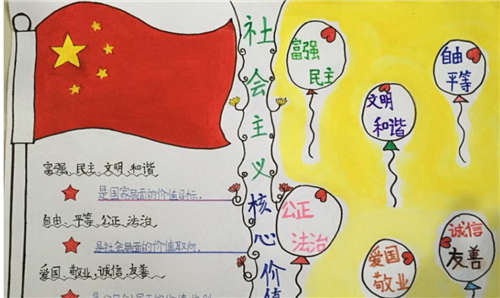 社会主义核心价值
富强、民主、文明、和谐
是国家层面的价值目标。
自由、平等、公正、法治
是社会层面的价值取向。
爱国、敬业、诚信、友善
富强
民主
自由
平等
文明
和谐
公正
法治
爱国
敬业
诚信
友善